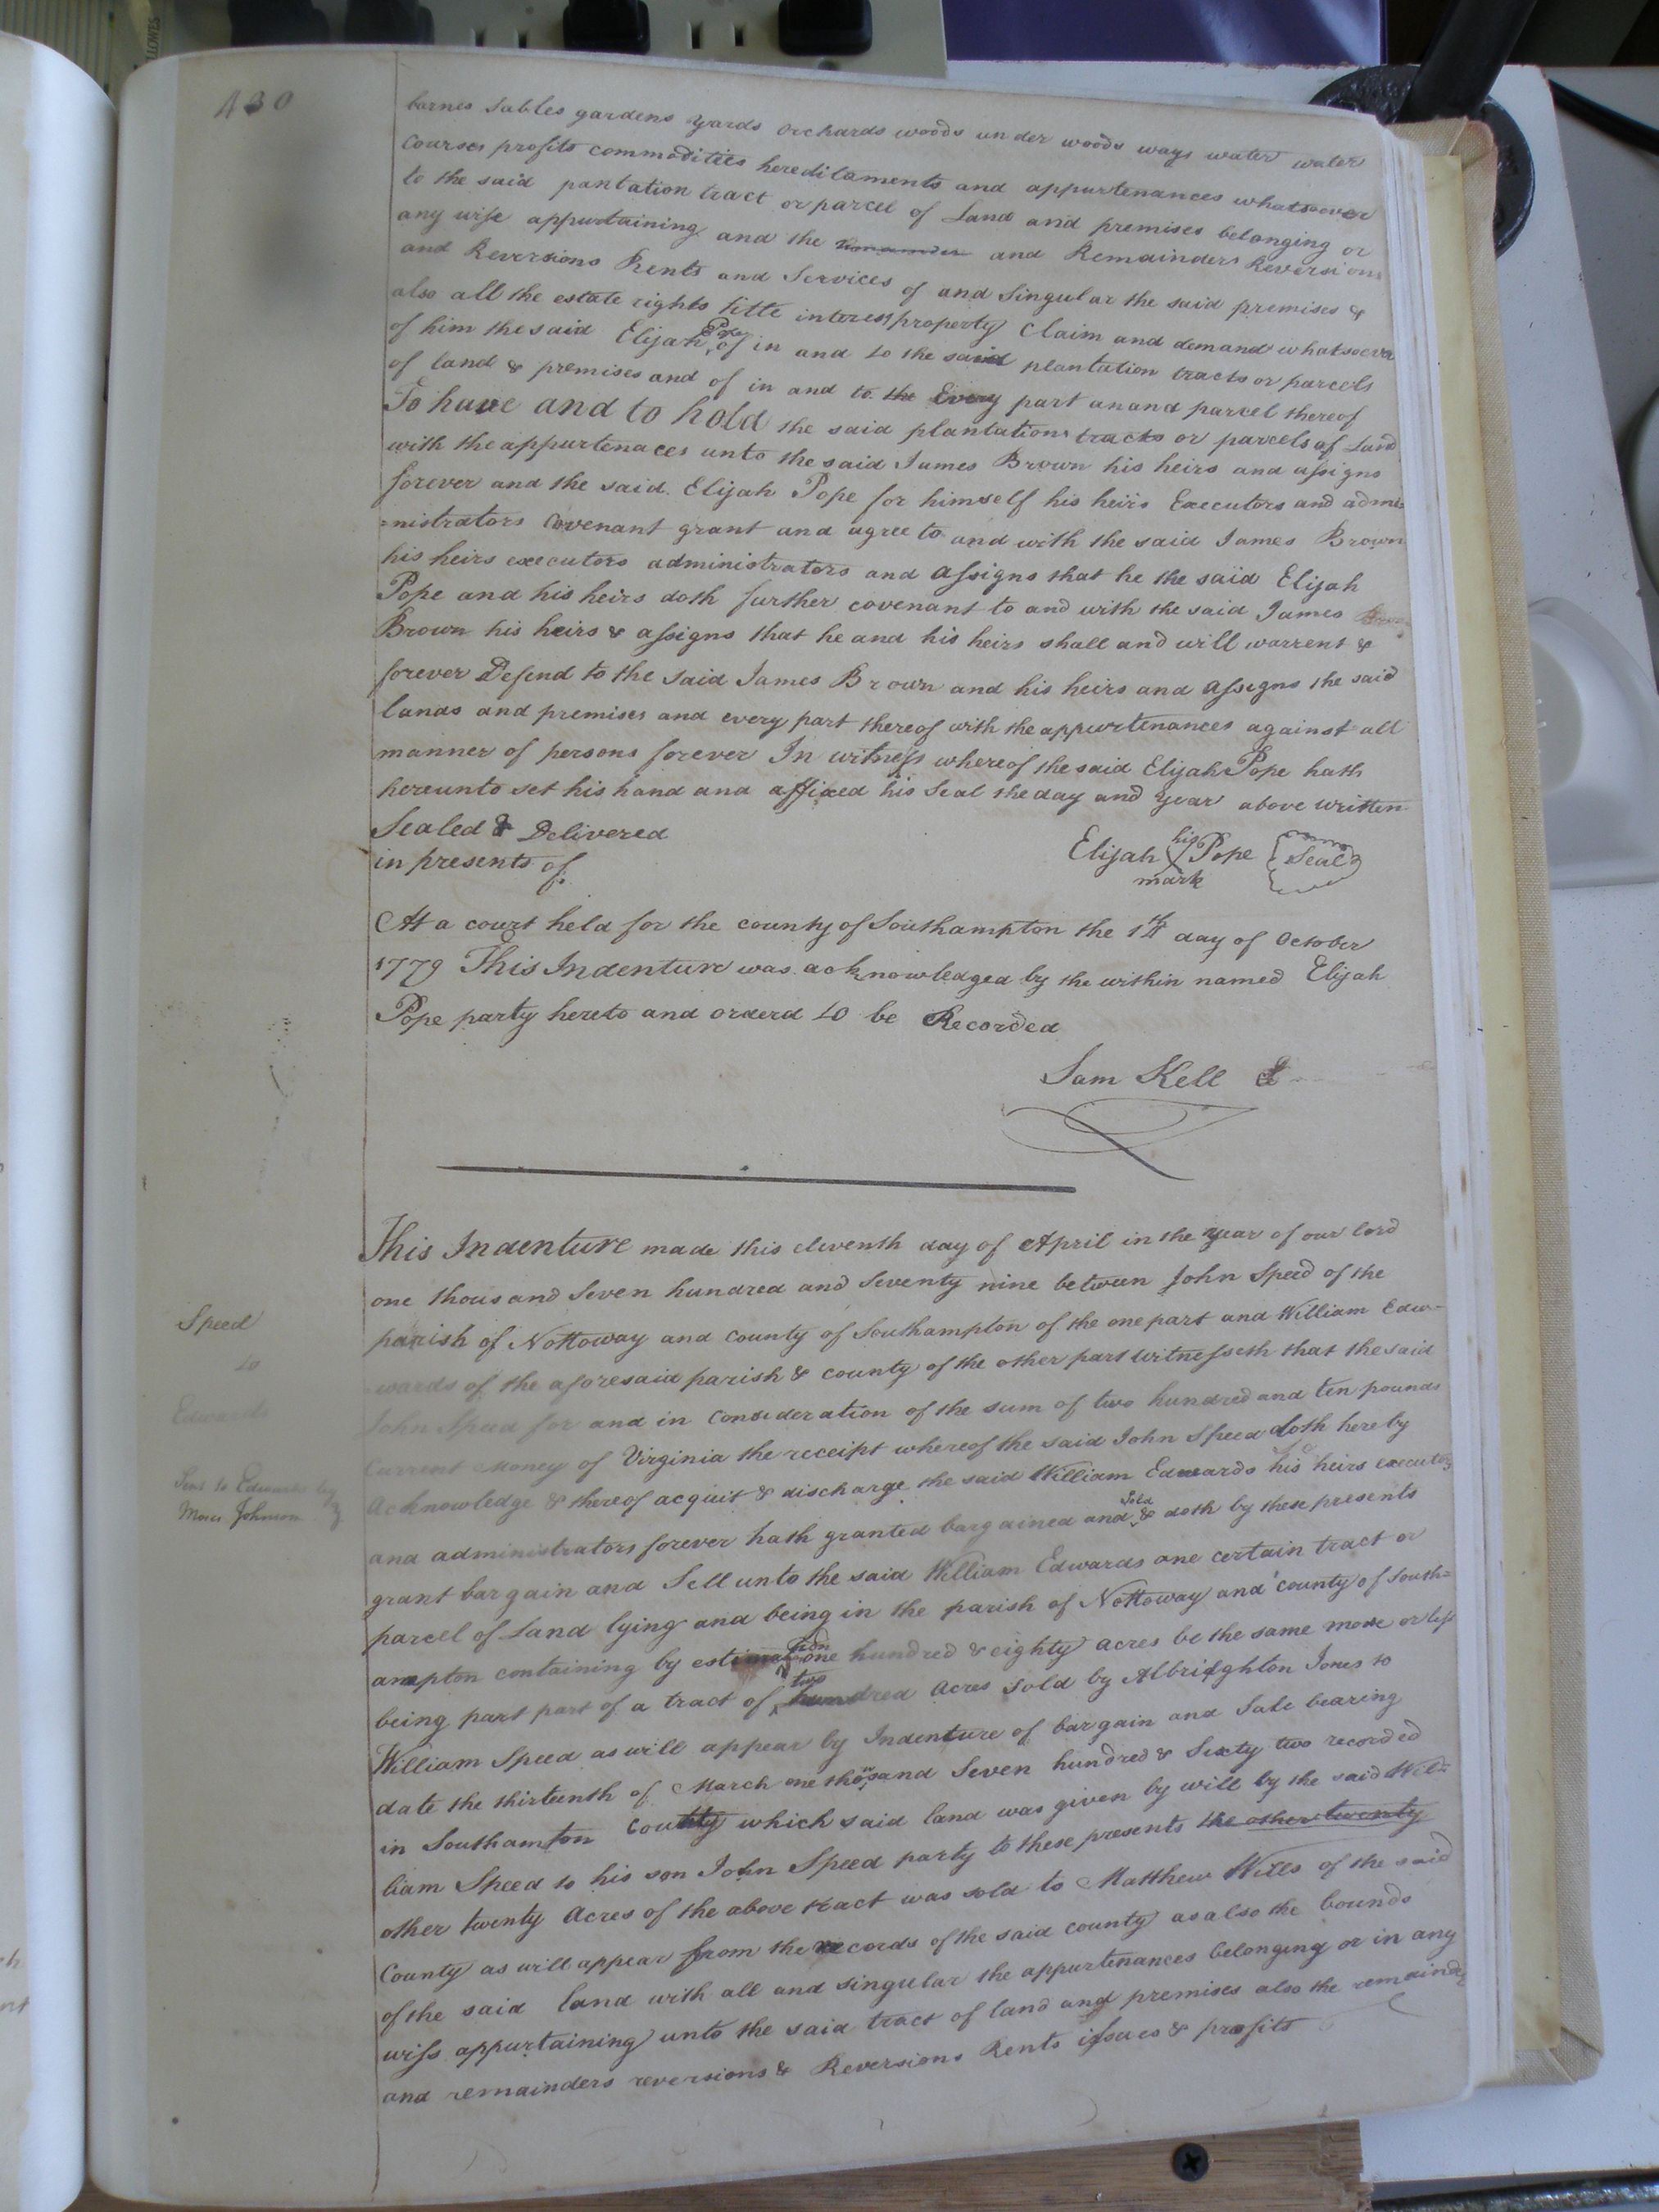 430
barnes Sables gardens yards orchards woods under woods ways water water
Courses profits commodities hereditaments and appurtenances whatsoever
to the said pantation tract or parcel of Land and premises belonging or
any wise appurtaining and the and Remainders Reversions
and Reversions Rents and Services of and Singular the said premises &
also all the estate rights title interest property Claim and demand whatsoever
of him the said Elijah Pope of in and to the said plantation tracts or parcels
of land & premises and of in and to the Every part anand parcel thereof
To have and to hold the said plantations tracts or parcels of Land
with the appurtenaces unto the said James Brown his heirs and assigns
forever and the said Elijah Pope for himself his heirs Executors and admi-
=nistrators Covenant grant and agree to and with the said James Brown
his heirs executors administrators and assigns that he the said Elijah
Pope and his heirs doth further covenant to and with the said James
Brown his heirs & assigns that he and his heirs shall and will warrent &
forever Defend to the said James Brown and his heirs and assigns the said
lands and premises and every part thereof with the appurtenances against all
manner of persons forever In witness whereof the said Elijah Pope hath
hereunto set his hand and affixed his Seal the day and year above written
Sealed & Delivered
in presents of
Elijah his X mark Pope Seal
At a court held for the county of Southampton the 14th day of October
1779 This Indenture was acknowledged by the within named Elijah
Pope party hereto and orderd to be Recorded
Sam Kell
This Indenture made this eleventh day of April in the year of our lord
one thousand Seven hundred and Seventy nine between John Speed of the
Speed
parish of Nottoway and county of Southampton of the one part and William Edw-
to
wards of the aforesaid parish & county of the other part witnesseth that the said
Edwards
John Speed for and in Consideration of the sum of two hundred and ten pounds
Current Money of Virginia the receipt whereof the said John Speed doth hereby
Sent to Edwards by
Moses Johnson
Acknowledge & thereof acquit & discharge the said William Edwards his heirs executors
and administrators forever hath granted bargained and Sold & doth by these presents
grant bargain and Sell unto the said William Edwards one certain tract or
parcel of Land lying and being in the parish of Nottoway and county of South=
ampton containing by estimation one hundred & eighty acres be the same more or less
being part part of a tract of two hundred acres sold by Albridghton Jones to
William Speed as will appear by Indenture of bargain and Sale bearing
date the thirteenth of March one thousand Seven hundred & Sixty two recorded
in Southamton County which said land was given by will by the said Wil=
liam Speed to his son John Speed party to these presents the other twenty
other twenty Acres of the above tract was sold to Matthew Wills of the said
County as will appear from the records of the said county as also the bounds
of the said land with all and singular the appurtenances belonging or in any
wiss appurtaining unto the said tract of land and premises also the remainder
and remainders reversions & Reversions Rents issues & profits